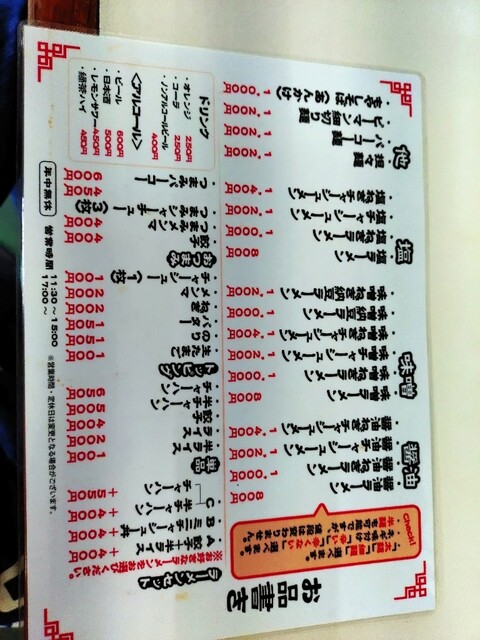 お品書き
Check!
・「太麺」「細麺」選べます。
・ネギ味付け「辛い」「辛くない」選べます。
・半麺も可能ですが、値段は変わりません。
醤油
・醤油ラーメン 800円
・醤油ねぎラーメン 1,000円
・醤油チャーシューメン 1,200円
・醤油ねぎチャーシューメン 1,400円
味噌
・味噌ラーメン 800円
・味噌ねぎラーメン 1,000円
・味噌チャーシューメン 1,200円
・味噌ねぎチャーシューメン 1,400円
・味噌納豆ラーメン 1,000円
・味噌ねぎ納豆ラーメン 1,200円
塩
・塩ラーメン 800円
・塩ねぎラーメン 1,000円
・塩チャーシューメン 1,200円
・塩ねぎチャーシューメン 1,400円
他
・担々麺 1,200円
・パーコー麺 1,200円
・ピーマン細切り麺 1,200円
・もやしそば(あんかけ) 1,000円
ラーメンセット
※お好きなラーメンをお選びください。
A 餃子+半ライス +400円
B ミニチャーシュー丼 +400円
C 半チャーハン +400円
チャーハン +550円
単品
・半ライス 100円
・ライス 200円
・餃子 400円
・半チャーハン 500円
・チャーハン 650円
トッピング
・生たまご 100円
・のり 150円
・バター 150円
・ねぎ 200円
・メンマ 200円
・チャーシュー(1枚) 100円
おつまみ
・餃子 400円
・つまみメンマ 400円
・つまみチャーシュー(3枚) 450円
・つまみパーコー 600円
ドリンク
・オレンジ 250円
・コーラ 250円
・ノンアルコールビール 400円
<アルコール>
・ビール 600円
・日本酒 500円
・レモンサワー 450円
・緑茶ハイ 450円
年中無休
営業時間 11:30~15:00
17:00~
※営業時間・定休日は変更となる場合がございます。